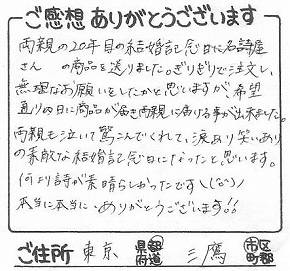 ご感想 ありがとうございます
両親の20年目の結婚記念日に名詩屋
さんの商品を送りました。ぎりぎりで注文し、
無理なお願いをしたかと思いますが、希望
通りの日に商品が届き両親に届ける事が出来ました。
両親も泣いて喜こんでくれて、涙あり笑いあり
の素敵な結婚記念日になったと思います。
何より詩が素晴らしかったです\(^o^)/
本当に本当に、ありがとうございます!!
ご住所 東京 都道府県 三鷹 市区町郡